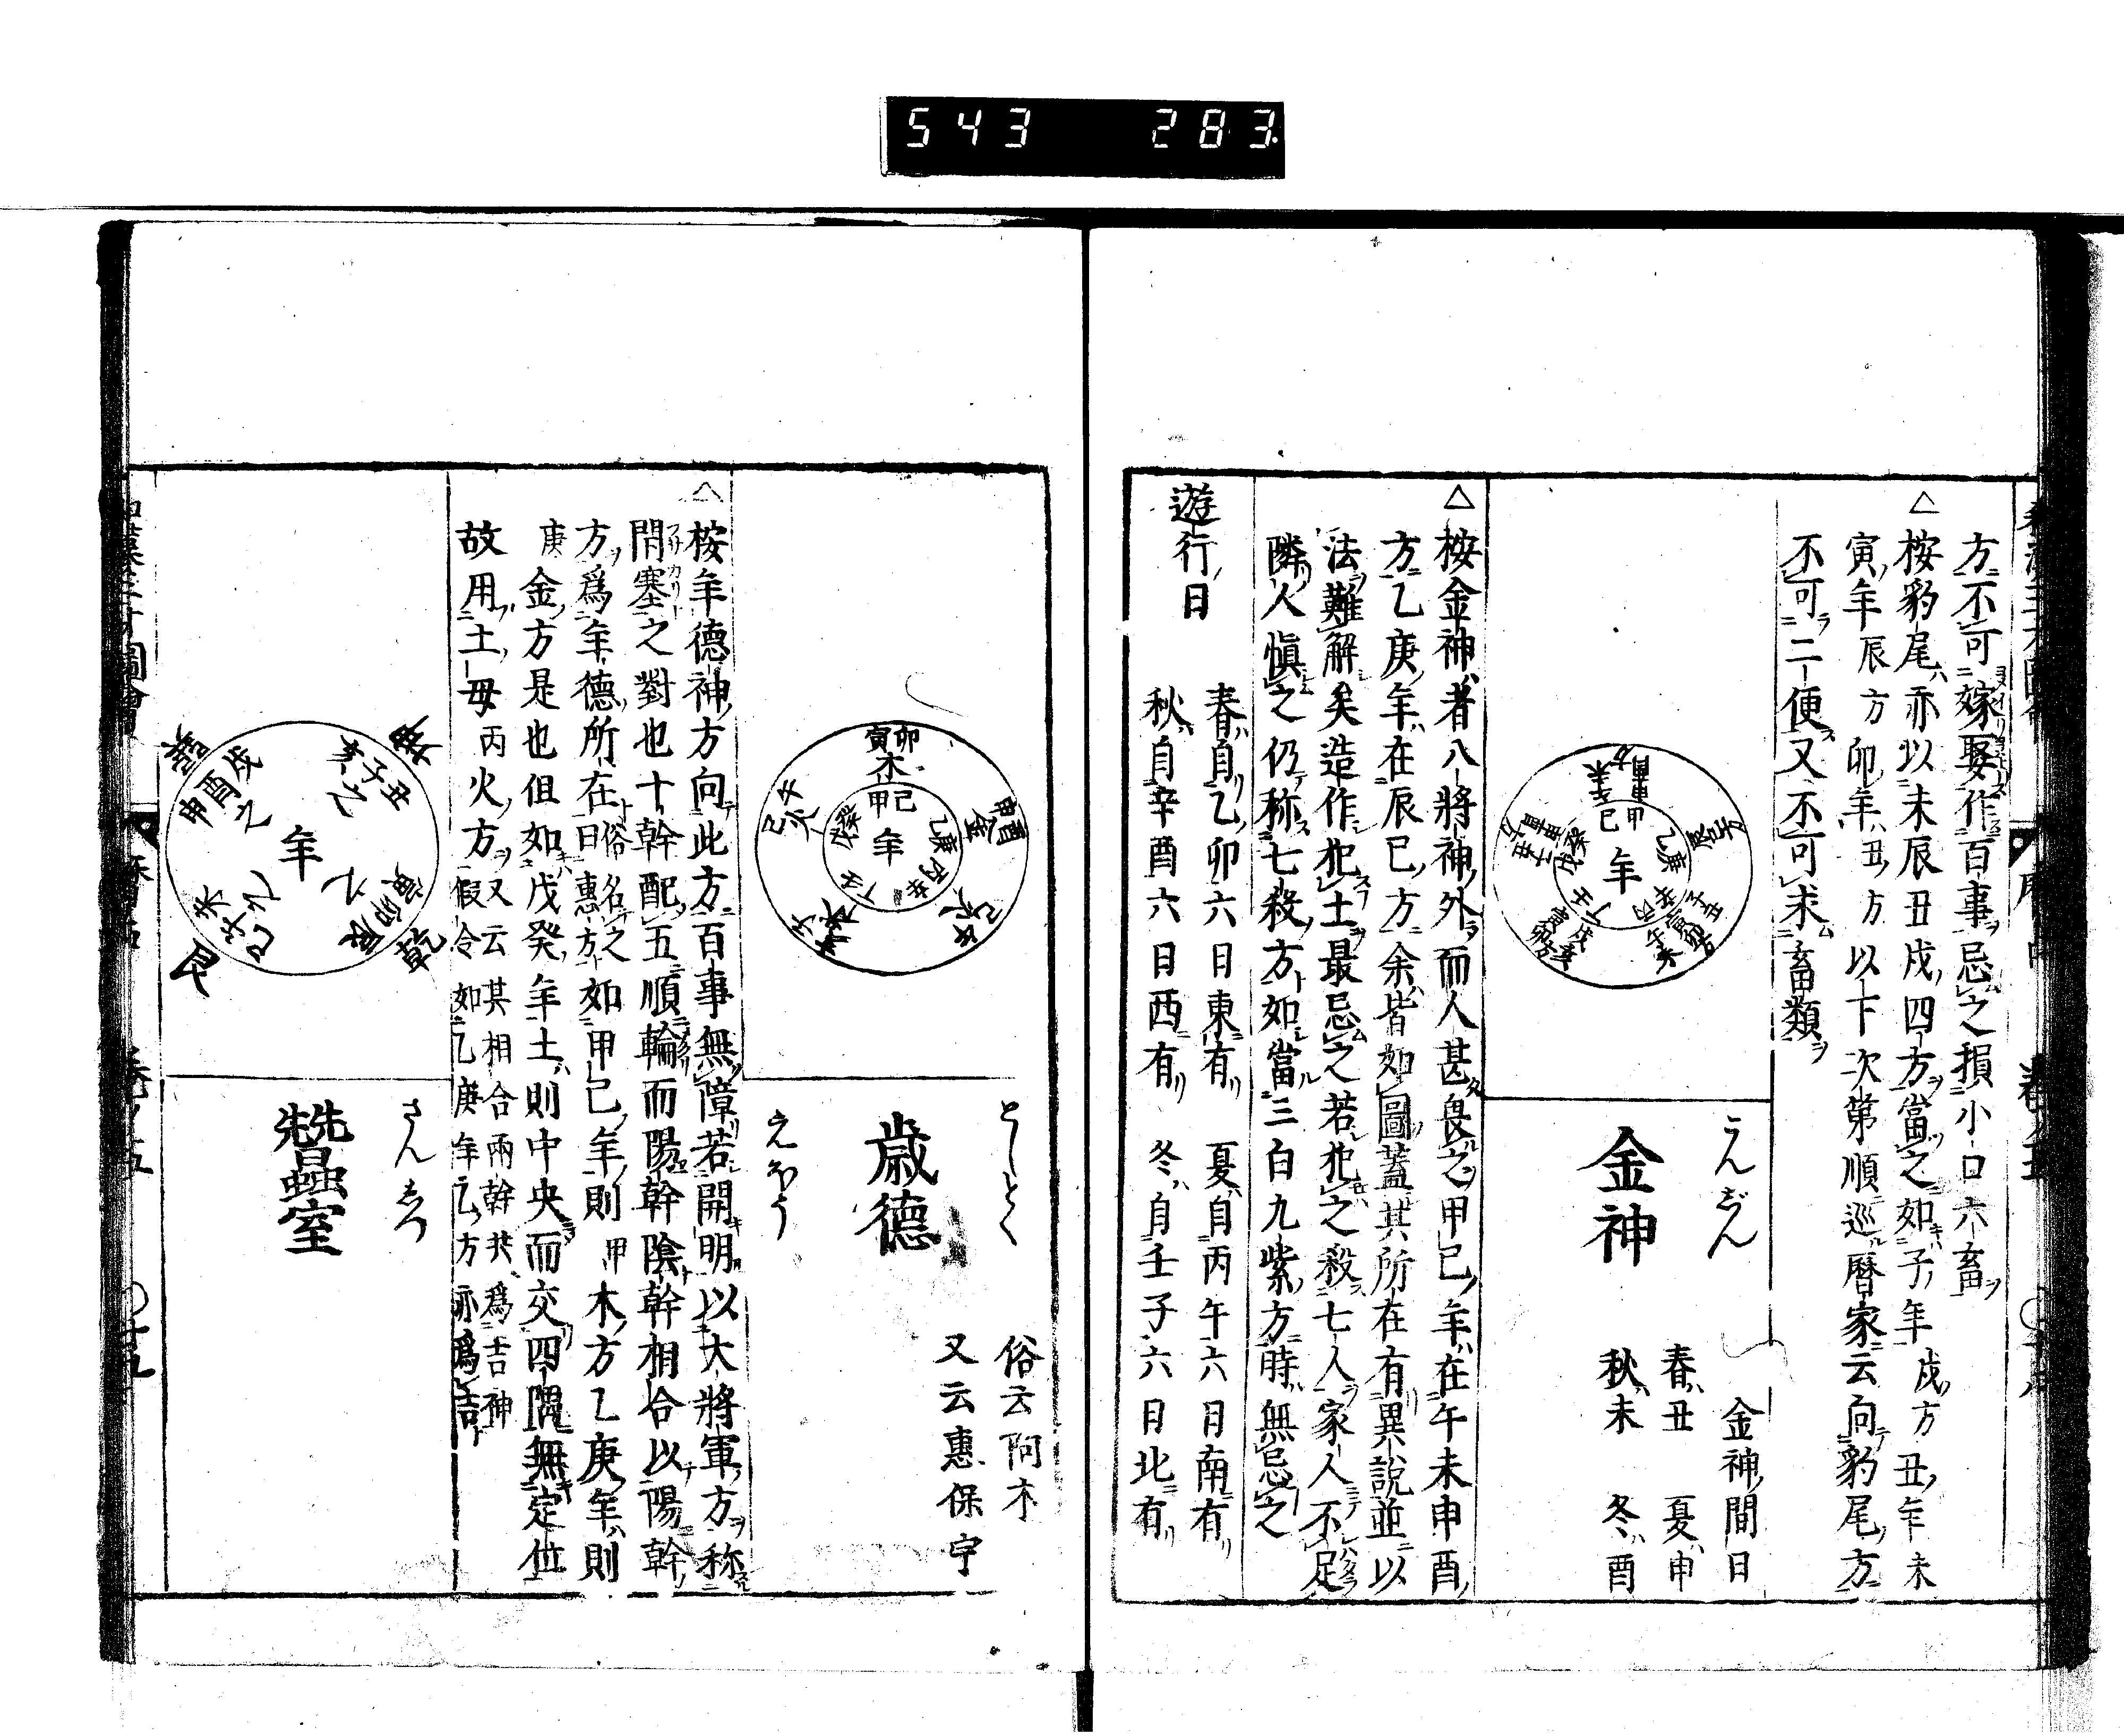 543 283.
方不可嫁娶作百事忌之損小口六畜
△按豹尾亦以未辰丑戌四方當之如子年戌方丑年未
寅年辰方卯年丑方以下次第順巡暦家云向豹尾方
不可二便又不可求畜類
こんじん
金神
金神間日
春丑 夏申
秋未 冬酉
甲己
乙庚
丙辛
丁壬
戊癸
年
△按金神者八將神外而人甚畏之甲己年在午未申酉
方乙庚年在辰巳方余皆如圖蓋其所在有異說並以
法難解矣造作犯土最忌之若犯之殺七人家人不足
隣人愼之仍称七殺方如當三白九紫方時無忌之
遊行日
春自乙卯六日東有 夏自丙午六日南有
秋自辛酉六日西有 冬自壬子六日北有
としとく
歳德
えほう
俗云阿木
又云惠保宇
寅卯
木
甲己
乙庚
丙辛
丁壬
戊癸
年
申酉
金
巳午
火
△按年德神方向此方百事無障若開明以大將軍方称
閉塞之對也十幹配五順輪而陽幹陰幹相合以陽幹
方爲年德所在俗名之曰惠方如甲己年則甲木方乙庚年則
庚金方是也但如戊癸年土則中央而交四隅無定位
故用土母丙火方又云其相合兩幹共爲吉神假令如乙庚年乙方亦爲吉
さんしつ
蠶室
坤
亥子丑
乾
寅卯辰
艮
巳午未
巽
申酉戌
年
和漢三才圖會